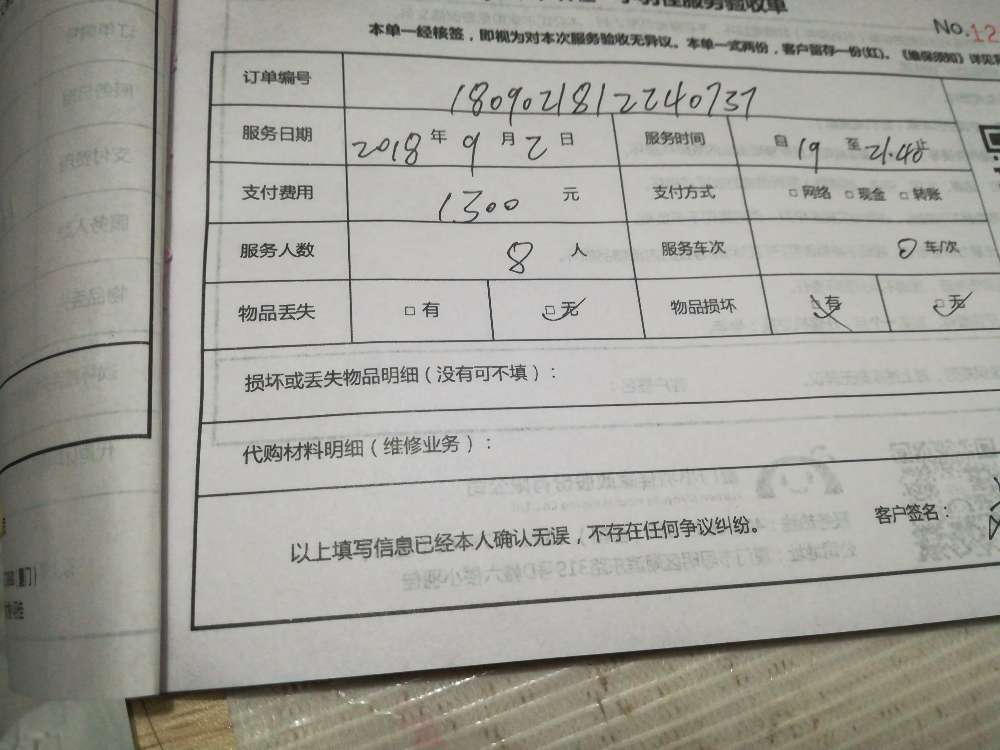 服务验收单
No.12
本单一经核签，即视为对本次服务验收无异议。本单一式两份，客户留存一份(红)。《维保须知》详见
订单编号 1809021812240737
服务日期 2018年9月2日 服务时间 自19至21.40止
支付费用 1300元 支付方式 □网络 □现金 □转账
服务人数 8人 服务车次 0车/次
物品丢失 □有 □无 物品损坏 □有 □无
损坏或丢失物品明细（没有可不填）：
代购材料明细（维修业务）：
以上填写信息已经本人确认无误，不存在任何争议纠纷。
客户签名：